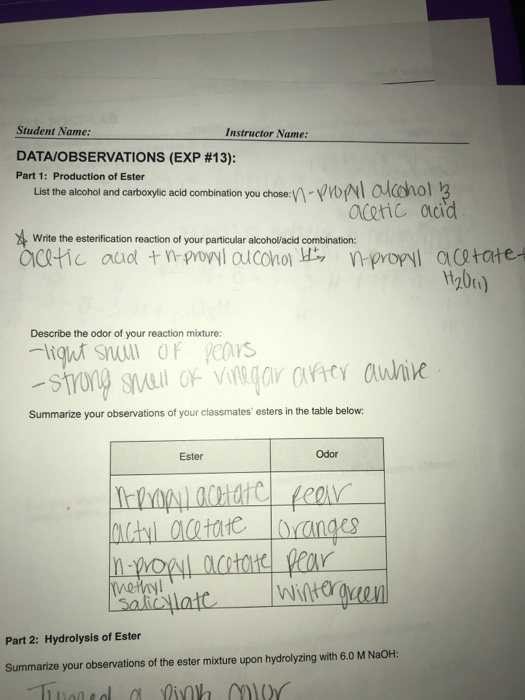 Student Name: Instructor Name:
DATA/OBSERVATIONS (EXP #13):
Part 1: Production of Ester
List the alcohol and carboxylic acid combination you chose: n-propyl alcohol &
acetic acid
Write the esterification reaction of your particular alcohol/acid combination:
acetic acid + n-propyl alcohol H+→ n-propyl acetate +
H2O(l)
Describe the odor of your reaction mixture:
-light smell of pears
-strong smell of vinegar after awhile
Summarize your observations of your classmates' esters in the table below:
Ester Odor
n-propyl acetate pear
acetate oranges
n-propyl acetate pear
methyl
salicylate wintergreen
Part 2: Hydrolysis of Ester
Summarize your observations of the ester mixture upon hydrolyzing with 6.0 M NaOH:
Turned a pink color